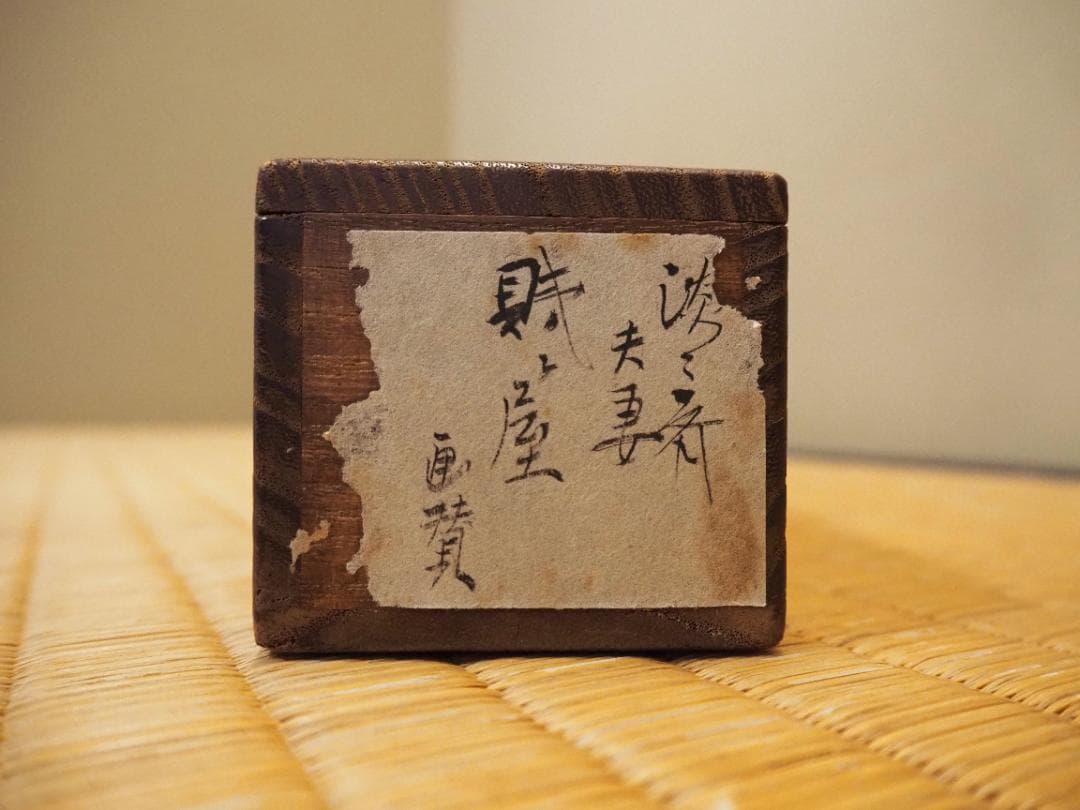 淡々斎
夫妻
賤ヶ屋
画賛